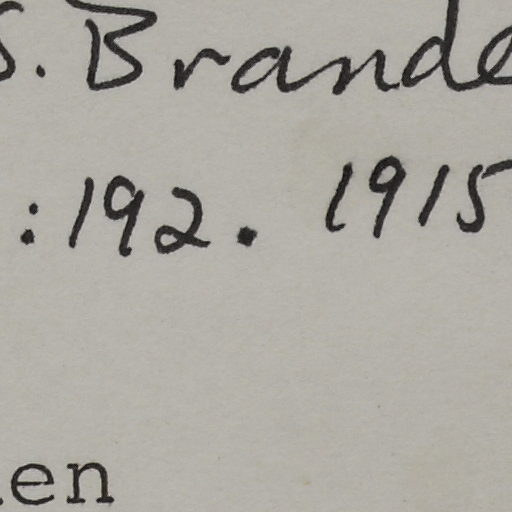 S. Brande
:192. 1915
en